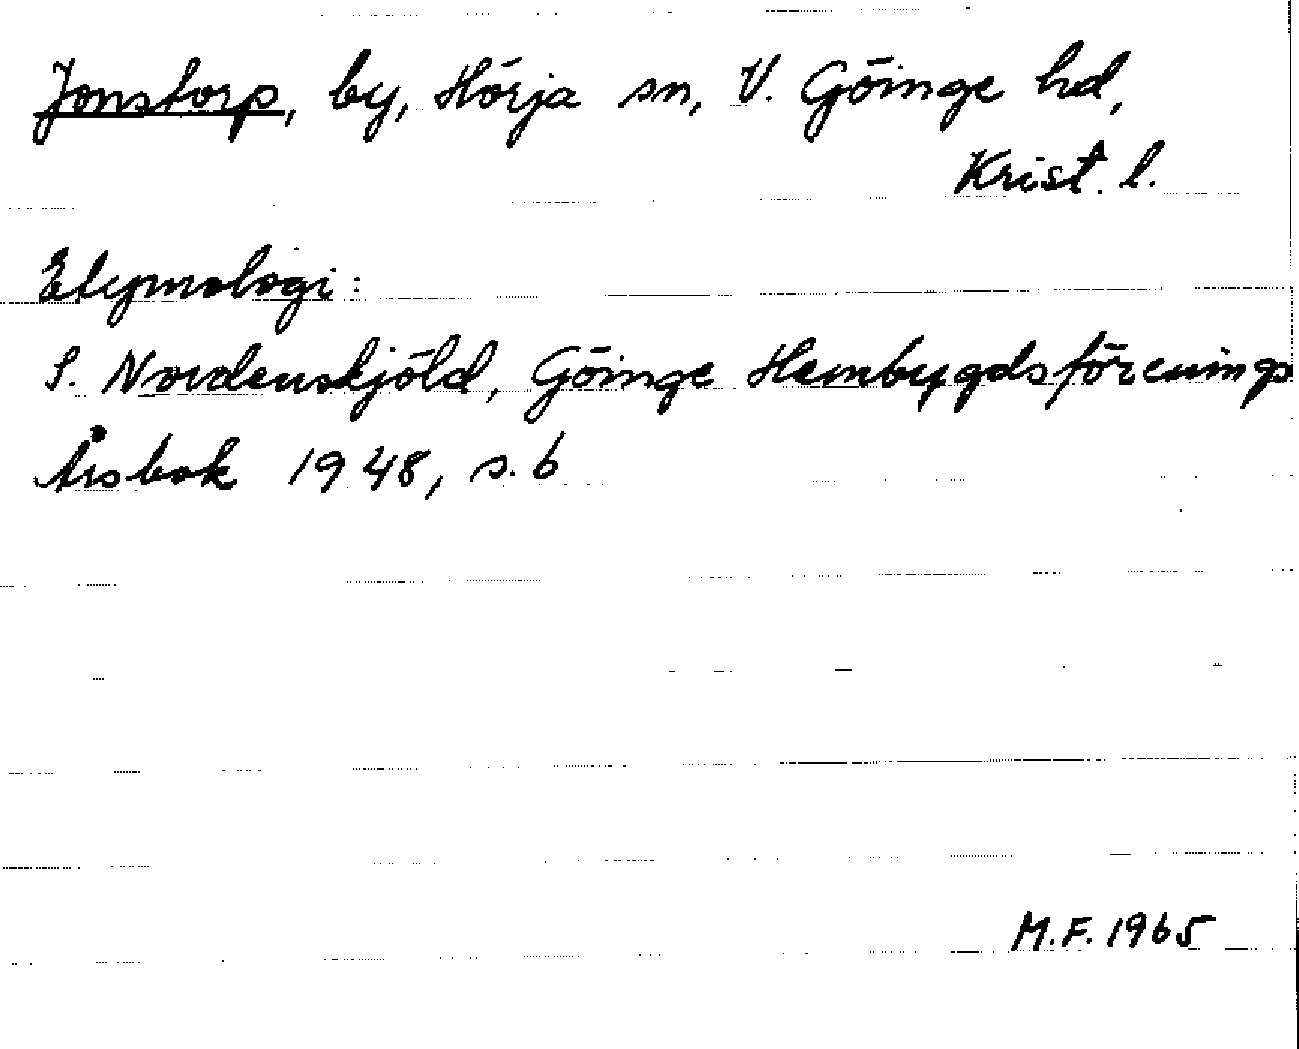 Jonstorp, by, Hörja sn, V. Göinge hd,
Krist. l.
Etymologi:
S. Nordenskjöld, Göinge Hembygdsförenings
Årsbok 1948, s. 6
M.F. 1965